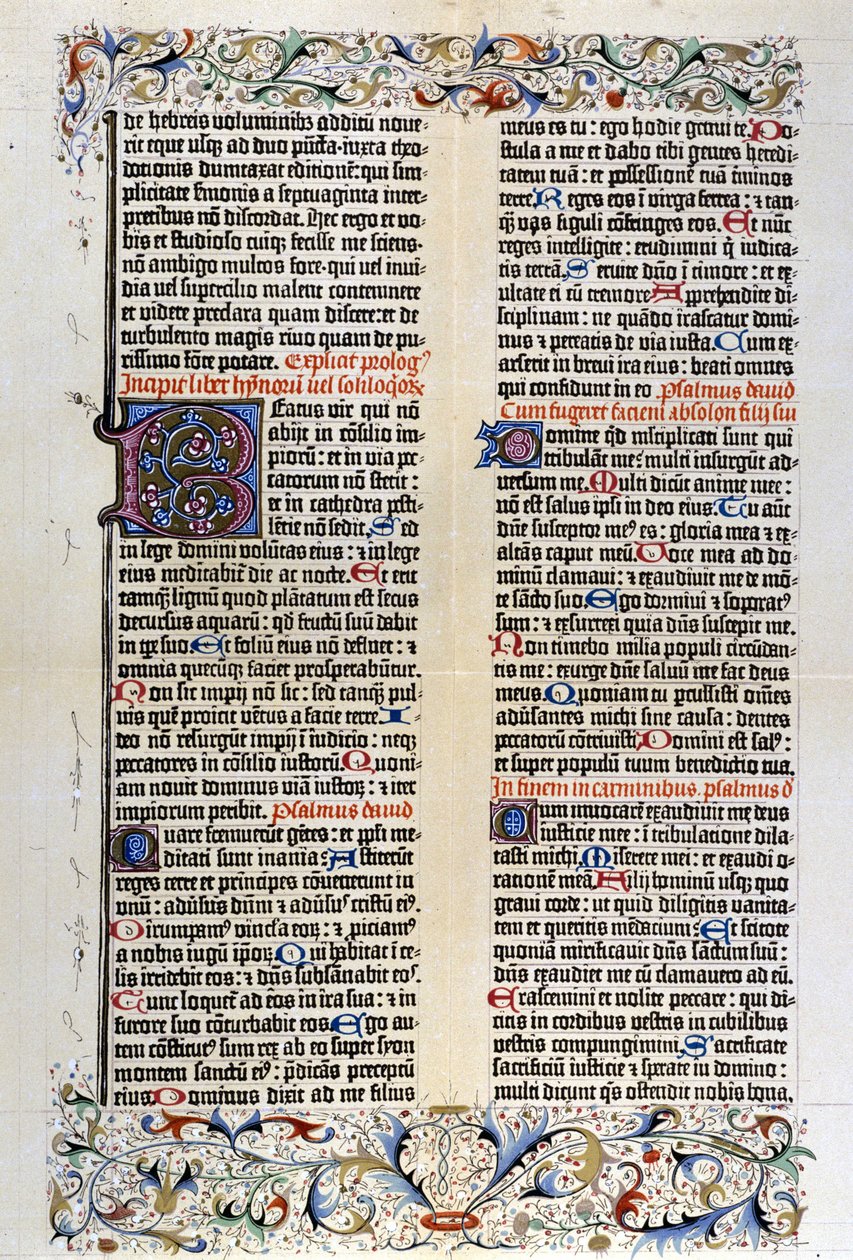 de hebreis voluminibꝫ additū noue-
rit eque usqꝫ ad duo pūcta·iuxta theo-
dotionis dumtaxat editionē: qui sim-
plicitate s̄monis a septuaginta inter-
pretibus nō discordat. Hec ergo et vo-
bis et studioso cuiqꝫ fecisse me sciens·
nō ambigo multos fore·qui vel invi-
dia vel supercilio malent contemnere
et videre preclara quam discere: et de
turbulento magis rivo quam de pu-
rissimo fōte potare. Explicit prologꝰ
Incipit liber hymnorū vel soliloquiorꝝ
Beatus vir qui nō
abijt in cōsilio im-
piorū: et in via pec-
catorum nō stetit:
et in cathedra pesti-
lētie nō sedit. Sed
in lege domini volūtas eius: & in lege
eius meditabit̄ die ac nocte. Et erit
tamqꝫ lignū quod plātatum est secus
decursus aquarū: qd̄ fructū suū dabit
in tp̄e suo. Et foliū eius nō defluet: &
omnia quecūqꝫ faciet prosperabūtur.
Non sic impij nō sic: sed tanqꝫ pul-
vis quē proicit vētus a facie terre. I-
deo nō resurgūt impij ī iudicio: neqꝫ
peccatores in cōsilio iustorū. Quoni-
am novit dominus viā iustorꝝ: & iter
impiorum peribit. Psalmus david
Quare fremuerūt gētes: et pp̄li me-
ditati sunt inania: Astiterūt
reges terre et principes cōvenerunt in
unū: adv̄sus dn̄m & adv̄susꝰ cristū eiꝰ.
Dirumpamꝰ vincla eoꝝ: & proiciamꝰ
a nobis iugū ip̄oꝝ. Qui habitat ī ce-
lis irridebit eos: & dn̄s subsānabit eos.
Tunc loquet̄ ad eos in ira sua: & in
furore suo cōturbabit eos. Ego au-
tem cōstitutꝰ sum rex ab eo super syon
montem sanctū eiꝰ: p̄dicās preceptū
eius. Dominus dixit ad me filius
meus es tu: ego hodie genui te. Po-
stula a me et dabo tibi gentes heredi-
tatem tuā: et possessionē tuā t̄minos
terre. Reges eos ī virga ferrea: & tan-
qꝫ vas figuli cōfringes eos. Et nūc
reges intelligite: erudimini q̄ iudica-
tis terrā. Servite dn̄o ī timore: et ex-
ultate ei cū tremore. Apprehendite di-
sciplinam: ne quādo irascatur domi-
nus & pereatis de via iusta. Cum ex-
arserit in brevi ira eius: beati omnes
qui confidunt in eo. Psalmus david
Cum fugeret faciem absolon filij sui
Domine qd̄ mĺtiplicati sunt qui
tribulāt me: multi insurgūt ad-
versum me. Multi dicūt anime mee:
nō est salus ipsi in deo eius. Tu aūt
dn̄e susceptor meꝰ es: gloria mea & ex-
altās caput meū. Voce mea ad do-
minū clamavi: & exaudivit me de mō-
te sācto suo. Ego dormivi & soporatꝰ
sum: & exsurrexi quia dn̄s suscepit me.
Non timebo milia populi circūdan-
tis me: exurge dn̄e salvū me fac deus
meus. Quoniam tu percussisti om̄es
adv̄santes michi sine causa: dentes
peccatorū cōtrivisti. Domini est salꝰ:
et super populū tuum benedictio tua.
In finem in carminibus. psalmus d̄
Cum invocarē exaudivit me deus
iusticie mee: ī tribulatione dila-
tasti michi. Miserere mei: et exaudi o-
rationē meā. Filij hominū usqꝫ quo
gravi corde: ut quid diligitis vanita-
tem et queritis mēdacium: Et scitote
quoniā mirificavit dn̄s sanctum suū:
dn̄s exaudiet me cū clamavero ad eū.
Irascemini et nolite peccare: qui di-
citis in cordibus vestris in cubilibus
vestris compungimini. Sacrificate
sacrificiū iusticie & sperate in domino:
multi dicunt qͥs ostendit nobis bona.